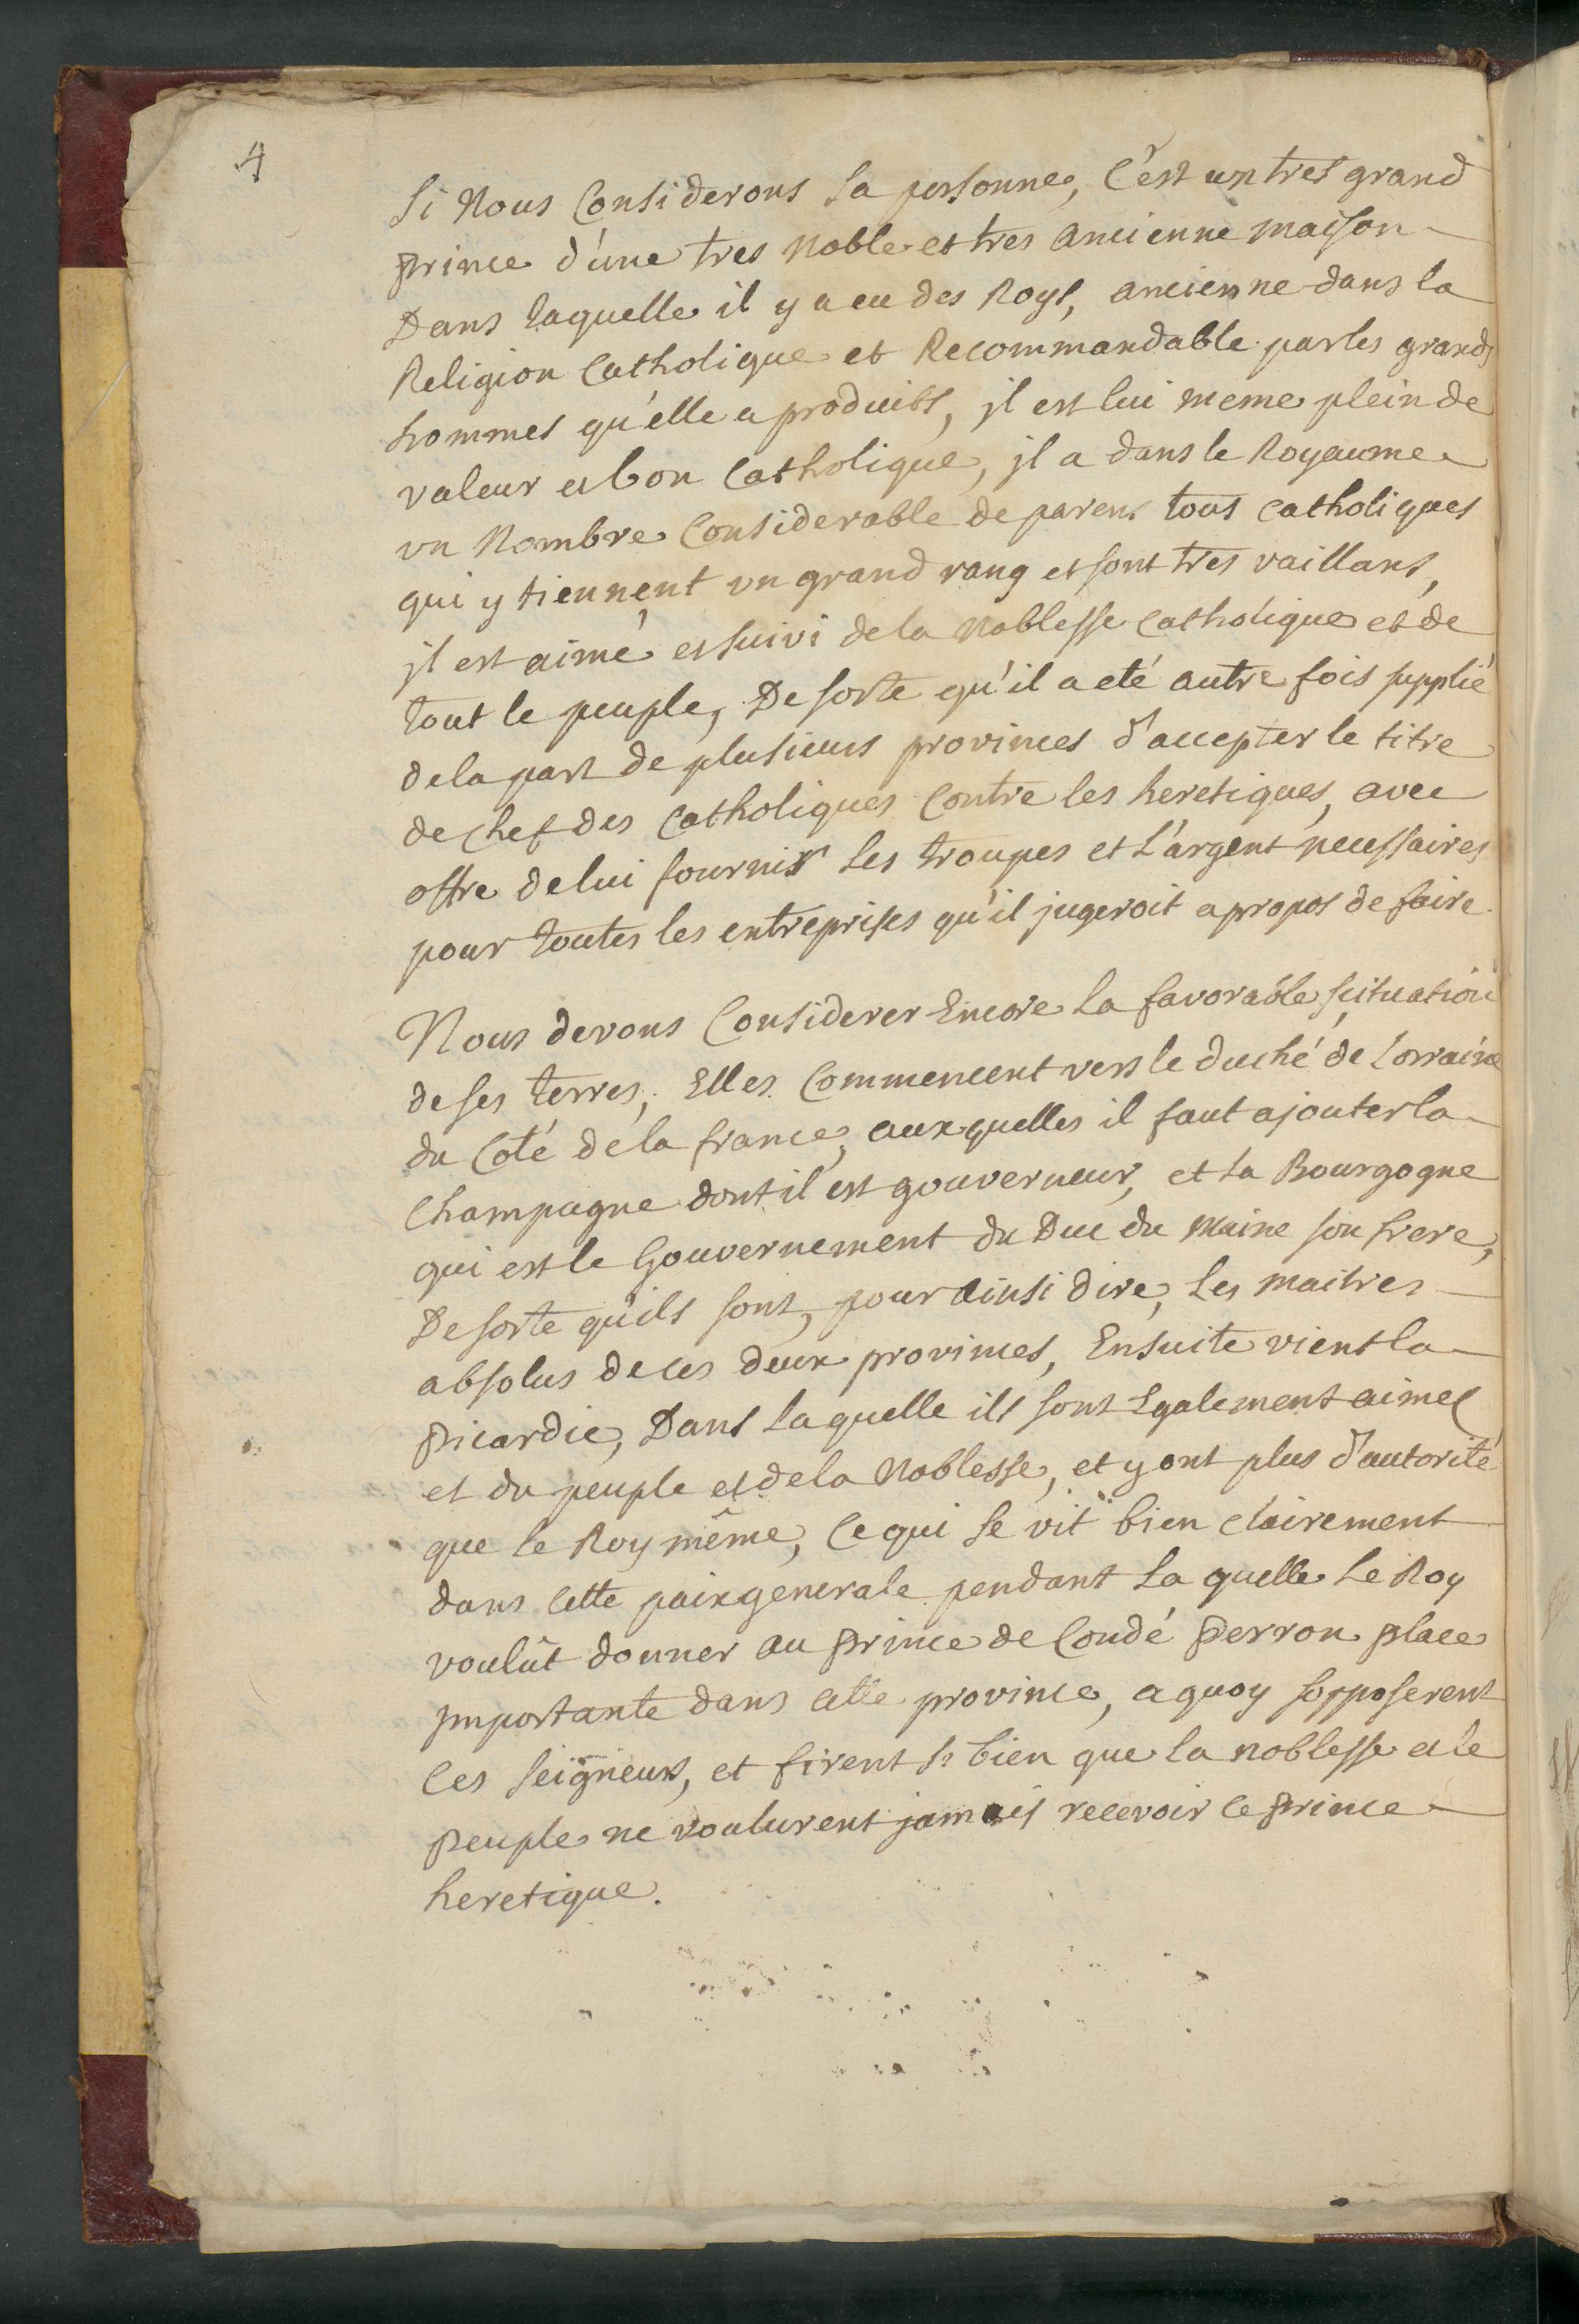 4
Si Nous Considerons Sa personne, C'est un tres grand
prince d'une tres Noble et tres Ancienne maison
Dans laquelle il y a eu des Roys, ancienne dans la
Religion Catholique et Recommandable par les grands
hommes qu'elle a produits, il est lui meme plein de
valeur et bon Catholique, il a dans le Royaume
un Nombre Considerable de parens tous catholiques
qui y tiennent un grand rang et sont tres vaillans,
il est aimé et suivi de la Noblesse Catholique et de
tout le peuple, De sorte qu'il a eté autre fois supplié
de la part de plusieurs provinces d'accepter le titre
de Chef des Catholiques Contre les heretiques, avec
offre de lui fournir les troupes et L'argent necessaires
pour toutes les entreprises qu'il jugeroit apropos de faire.
Nous devons Considerer Encore la favorable scituation
de ses terres; Elles Commencent vers le duché de Lorraine
du Coté de la france, auxquelles il faut ajouter la
Champagne dont il est gouverneur, et la Bourgogne
qui est le Gouvernement du Duc du Maine son frere,
De sorte qu'ils sont, pour ainsi dire, les maitres
absolus de ces deux provinces, Ensuite vient la
picardie, Dans laquelle ils sont Egalement aimes
et du peuple et de la Noblesse, et y ont plus d'autorité
que le Roy même, Ce qui se vit bien clairement
dans Cette paix generale pendant la quelle le Roy
voulût donner au prince de Condé perron place
importante dans cette province, a quoy s'opposerent
Ces seigneurs, et firent si bien que la noblesse et le
peuple ne voulurent jamais recevoir ce prince
heretique.